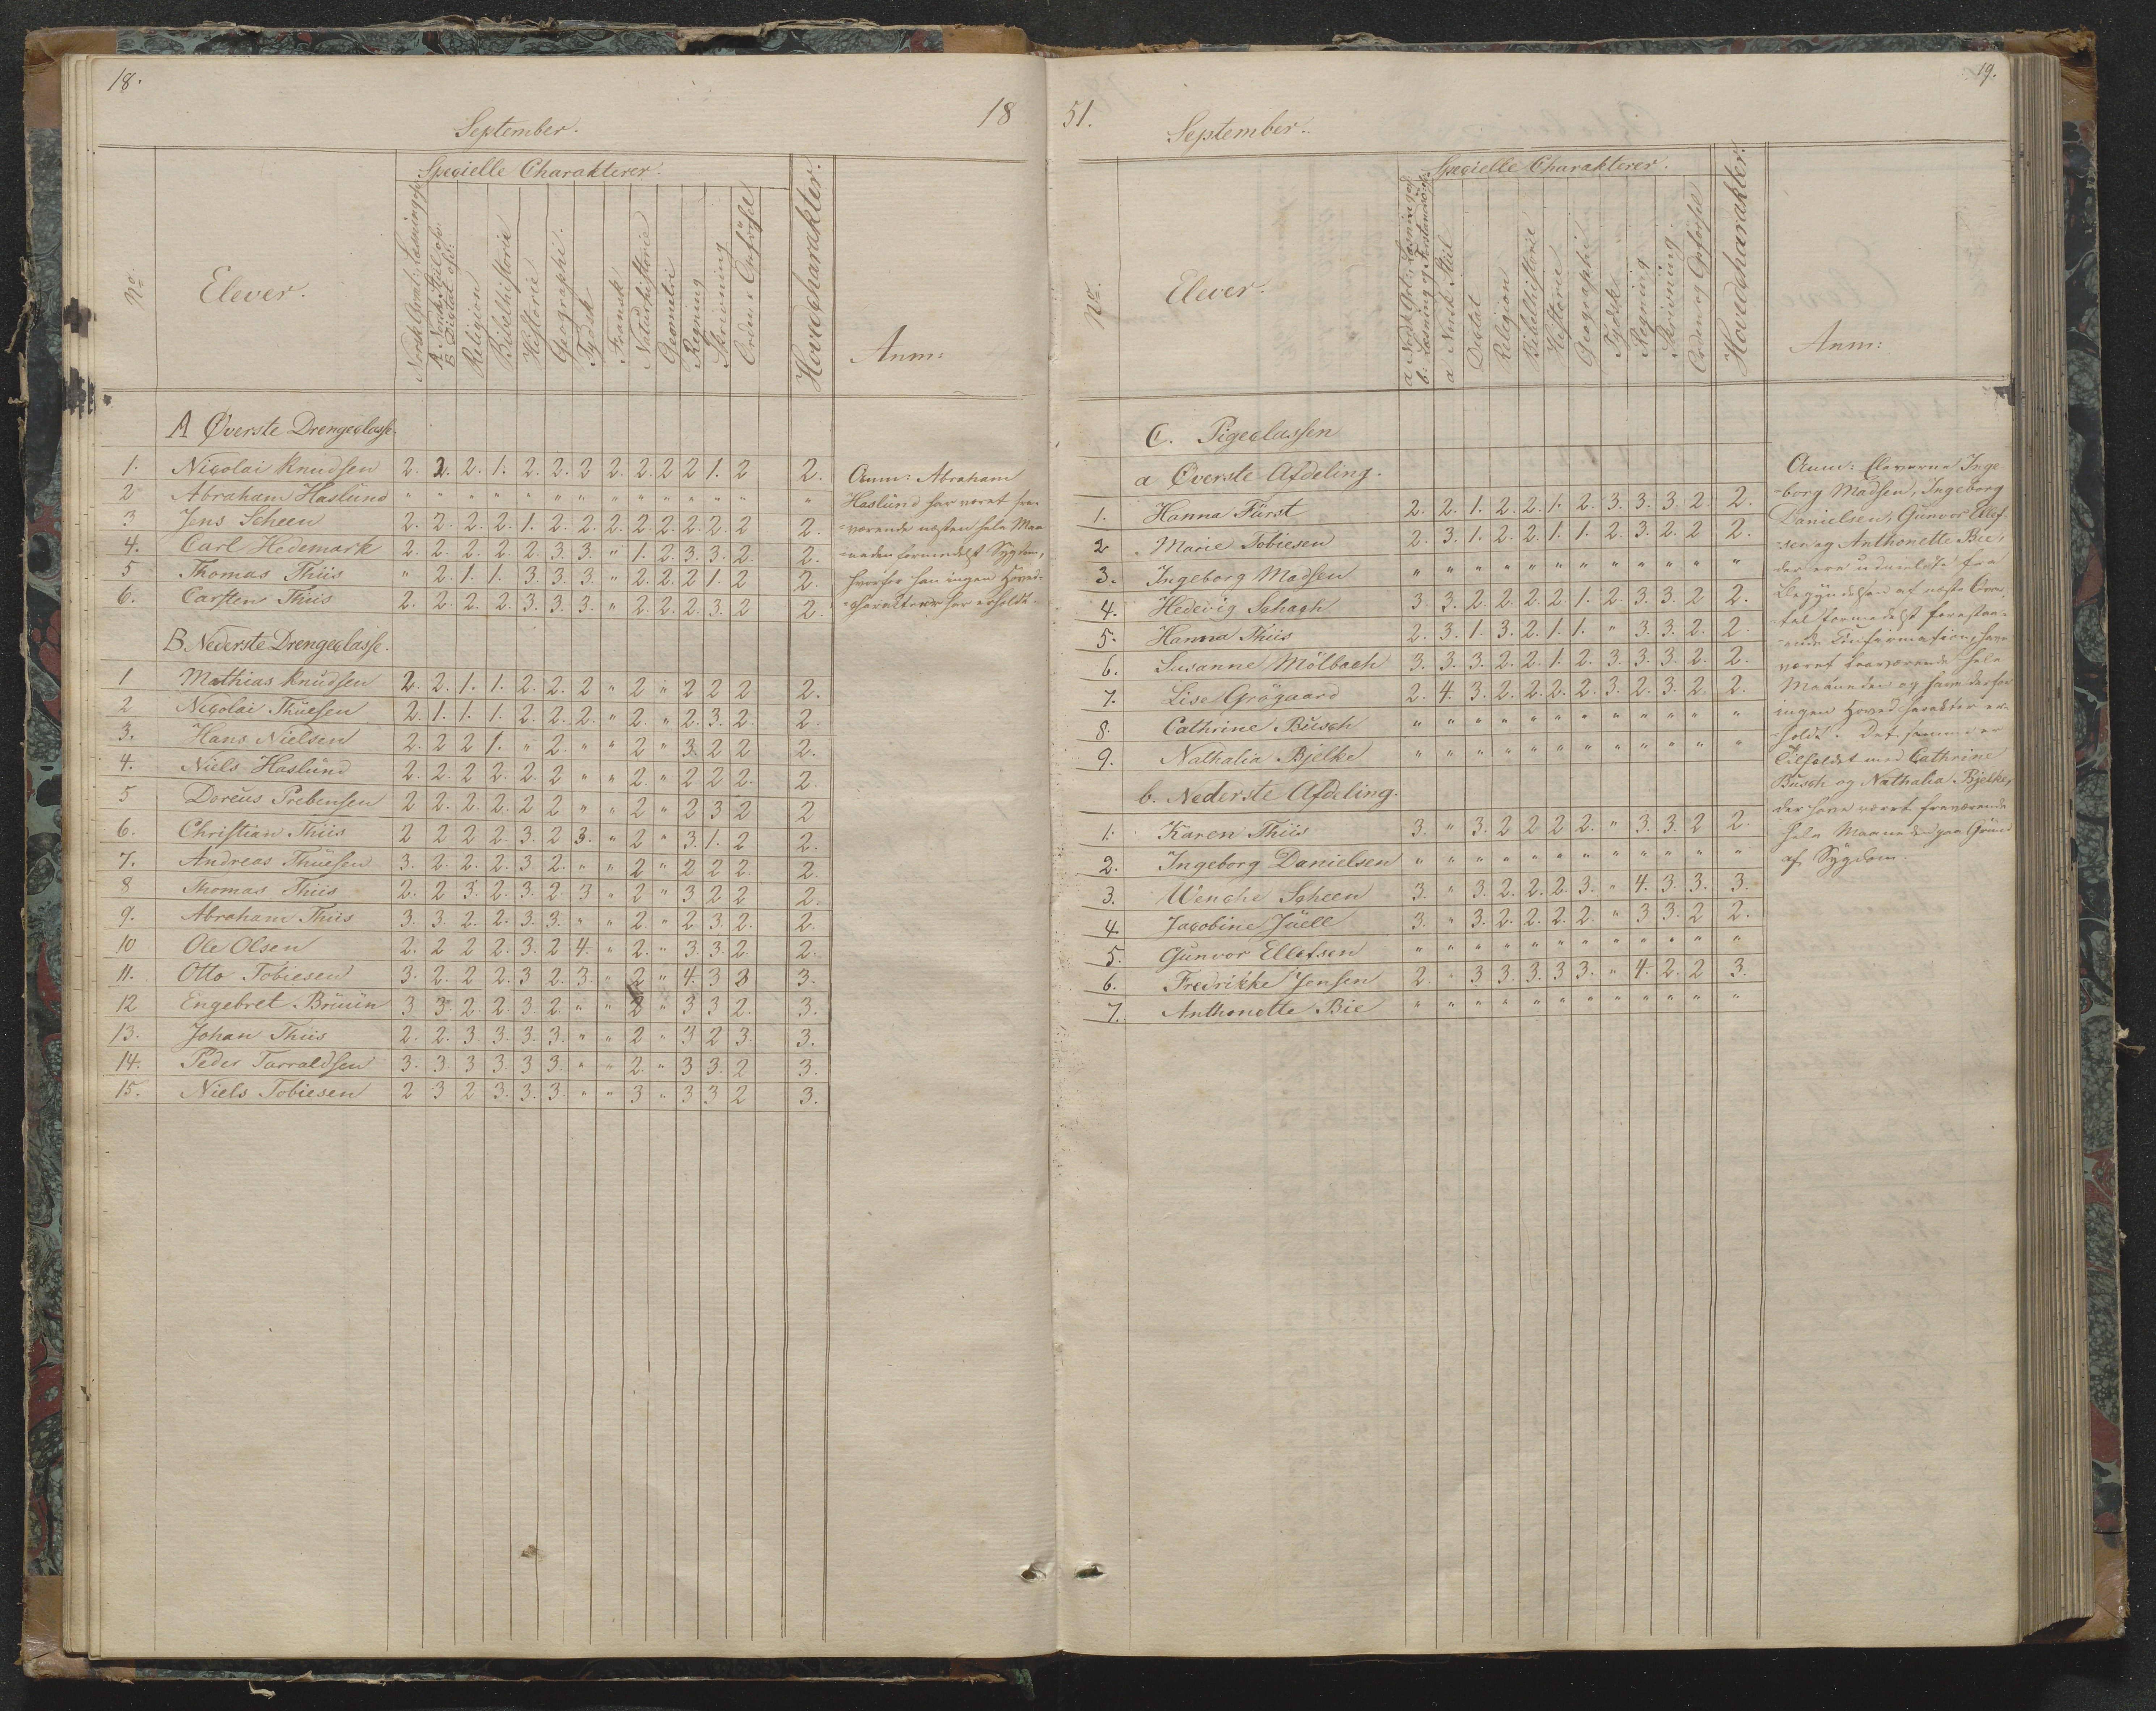 18.
September.
18
No
Elever.
Specielle Charakterer.
Religion
Bibelhistorie
Historie
Geographi.
Tydsk
Fransk
Naturhistorie
Geometri
Regning
Skrivning
Orden & Opførsel
Hovedcharakter.
Anm:
A Øverste Drengeclasse.
1. Nicolai Knudsen 2. 2. 2. 1. 2. 2. 2 2. 2. 2 2 1. 2 2.
2 Abraham Haslund " " " " " " " " " " " " " "
3 Jens Scheen 2. 2. 2. 2. 1. 2. 2. 2. 2. 2. 2. 2. 2 2.
4. Carl Hedemark 2. 2. 2. 2. 2. 3. 3. " 1. 2. 3. 3. 2. 2.
5 Thomas Thiis " 2. 1. 1. 3. 3. 3. " 2. 2. 2 1. 2 2.
6. Carsten Thiis 2. 2. 2. 2. 3. 3. 3. " 2. 2. 2. 3. 2 2.
Anm: Abraham
Haslund har været fra-
-værende næsten hele Maa-
-neden formedelst Sygdom,
hvorfor han ingen Hoved-
-charakter har erholdt.
B. Nederste Drengeclasse.
1 Mathias Knudsen 2. 2. 1. 1. 2. 2. 2 " 2 " 2 2 2 2.
2 Nicolai Thuesen 2. 1. 1. 1. 2. 2. 2. " 2. " 2. 3. 2. 2.
3. Hans Nielsen 2. 2 2 1. " 2. " " 2 " 3. 2 2 2.
4. Niels Haslund 2. 2. 2 2. 2. 2 " " 2. " 2 2 2. 2.
5 Doreus Prebensen 2 2. 2. 2. 2 2 " " 2 " 2 3 2 2
6. Christian Thiis 2 2 2 2. 3. 2 3. " 2 " 3. 1. 2 2.
7. Andreas Thuesen 3. 2. 2. 2. 3 2. " " 2 " 2 2 2. 2.
8 Thomas Thiis 2. 2 3. 2. 3. 2. 3 " 2 " 3 2 2 2.
9. Abraham Thiis 3. 3. 2. 2. 3. 3. " " 2. " 2 3 2. 2.
10 Ole Olsen 2. 2 2 2. 3. 2 4. " 2. " 3. 3. 2. 2.
11. Otto Tobiesen 3. 2. 2 2. 3 2. 3. " 2 " 4. 3 3 3.
12 Engebret Bruun 3 3. 2. 2. 3. 2. " " 2 " 3 3 2. 3.
13. Johan Thiis 2. 2. 3 3. 3. 3. " " 2 " 3 2 3. 3.
14. Peder Tarraldsen 3. 3. 3 3. 3 3. " " 2. " 3 3. 2 3.
15. Niels Tobiesen 2 3 2 3. 3. 3. " " 3 " 3 3 2 3.
51.
September.
19.
No.
Elever.
Specielle Charakterer.
a Norsk Stil
Dictat
Religion
Bibelhistorie
Historie
Geographi
Tydsk
Regning
Skrivning.
Orden og Opførsel
Hovedcharakter.
Anm:
C. Pigeclassen
a Øverste Afdeling.
1. Hanna Fürst 2. 2. 1. 2. 2. 1. 2. 3. 3. 3. 2 2.
2 Marie Tobiesen 2. 3. 1. 2. 2. 1. 1. 2. 3. 2. 2 2.
3. Ingeborg Madsen " " " " " " " " " " " "
4. Hedevig Schach 3. 3. 2. 2. 2. 2. 1. 2. 3. 3. 2 2.
5. Hanna Thiis 2. 3. 1. 3. 2. 1. 1. " 3. 3. 2. 2.
6. Susanne Mølbach 3. 3. 3. 2. 2. 1. 2. 3. 3. 3. 2. 2.
7. Lise Grøgaard 2. 4. 3. 2. 2. 2. 2. 3. 2. 3. 2 2.
8. Cathrine Busch " " " " " " " " " " " "
9. Nathalia Bjelke " " " " " " " " " " " "
b. Nederste Afdeling.
1. Karen Thiis 3. " 3. 2 2 2 2. " 3. 3. 2 2.
2. Ingeborg Danielsen " " " " " " " " " " " "
3. Wenche Scheen 3. " 3. 2. 2. 2. 3. " 4. 3. 3. 3.
4. Jacobine Juell 3. " 3. 2. 2. 2. 2. " 3 3. 2 2.
5. Gunvor Ellefsen " " " " " " " " " " " "
6. Fredrikke Jensen 2. " 3. 3. 3. 3 3. " 4. 2. 2 3.
7. Anthonette Bie " " " " " " " " " " " "
Anm: Eleverne Inge-
-borg Madsen, Ingeborg
Danielsen, Gunvor Ellef-
-sen og Anthonette Bie,
der ere udmeldte fra
Begyndelsen af næste Qvar-
-tal formedelst forestaa-
-ende Confirmation, have
været fraværende hele
Maaneden og have derfor
ingen Hovedcharakter er-
-holdt. Det samme er
Tilfældet med Cathrine
Busch og Nathalia Bjelke,
der have været fraværende
hele Maaneden paa Grund
af Sygdom.